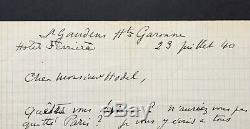 St Gaudens Hte Garonne
Hotel Ferrière 23 juillet 40
Cher Monsieur Hodel,
Qu'êtes vous n'aurez vous pas
quitté Paris ? je vous écris à tous